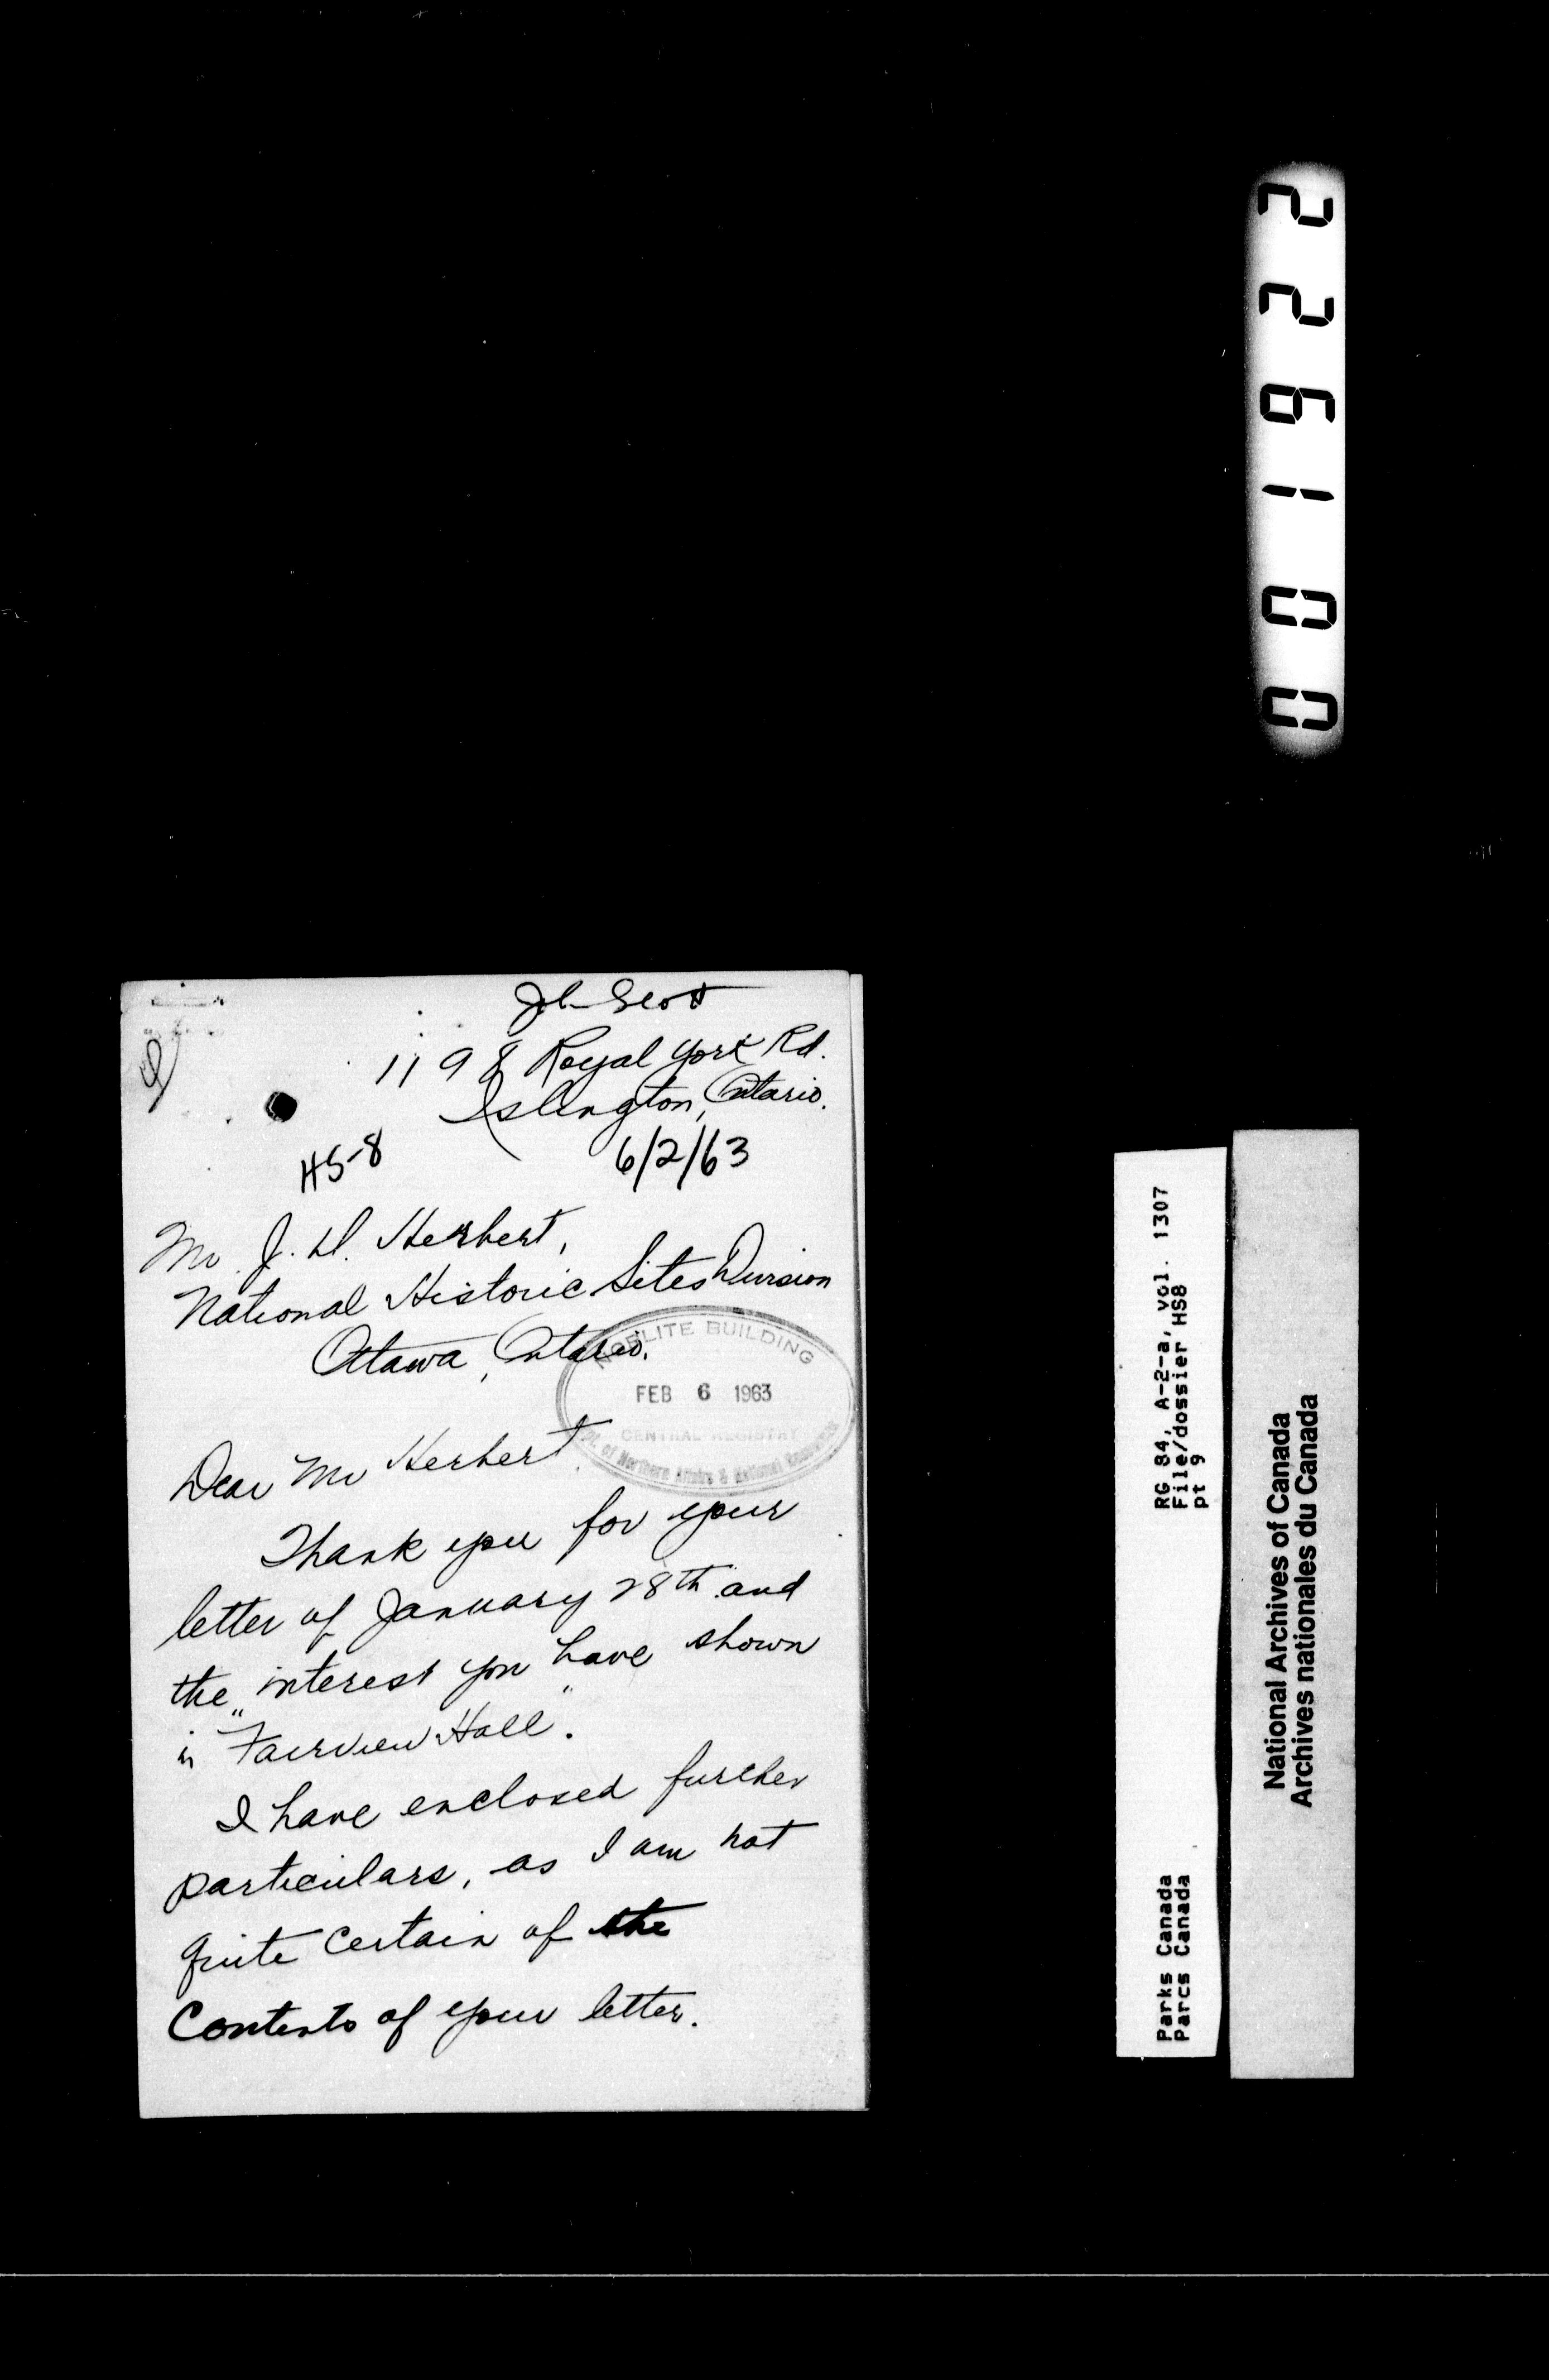 Scott
1198 Royal York Rd.
Islington, Ontario.
HS-8
6/2/63
Mr. J. D. Herbert,
National Historic Sites Division
Ottawa, Ontario.
NORLITE BUILDING
FEB 6 1963
CENTRAL REGISTRY
Dept. of Northern Affairs & National Resources
Dear Mr Herbert
Thank you for your
letter of January 28th and
the interest you have shown
in "Fairview Hall".
I have enclosed further
particulars, as I am not
quite certain of the
contents of your letter.
001922
RG 84, A-2-a, vol. 1307
File/dossier HS8
pt 9
Parks Canada
Parcs Canada
National Archives of Canada
Archives nationales du Canada